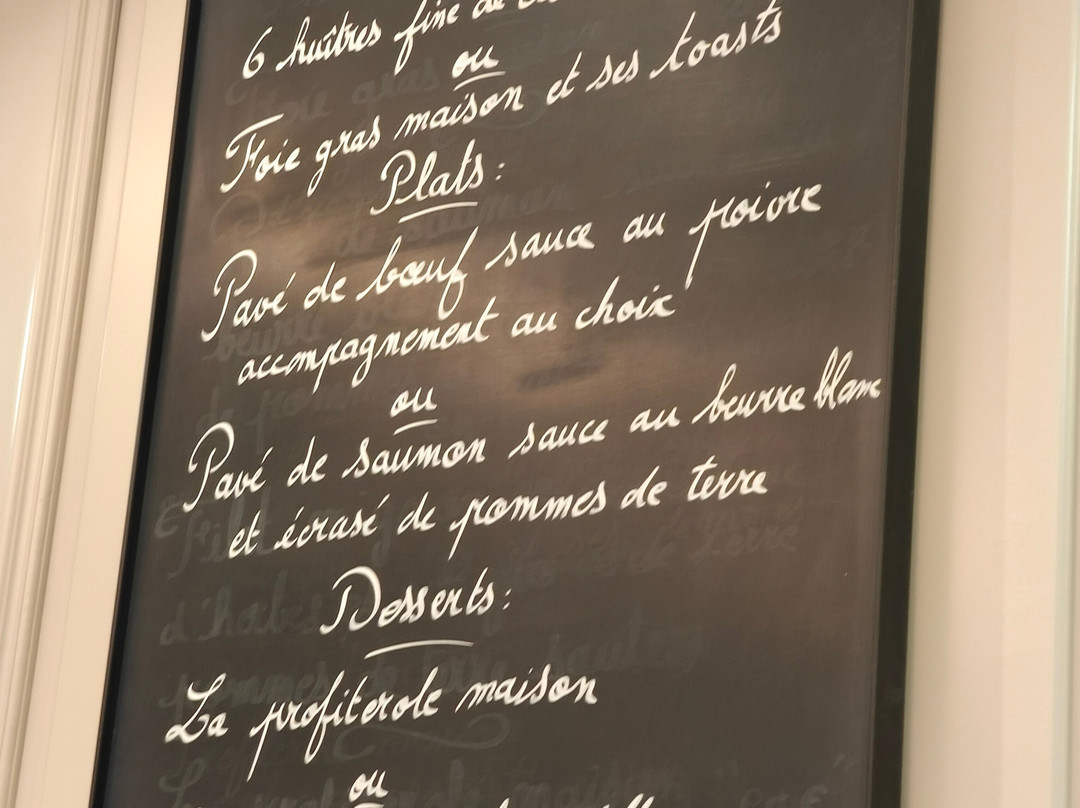 6 huîtres fine de
ou
Foie gras maison et ses toasts
Plats :
Pavé de bœuf sauce au poivre
accompagnement au choix
ou
Pavé de saumon sauce au beurre blanc
et écrasé de pommes de terre
Desserts :
La profiterole maison
ou